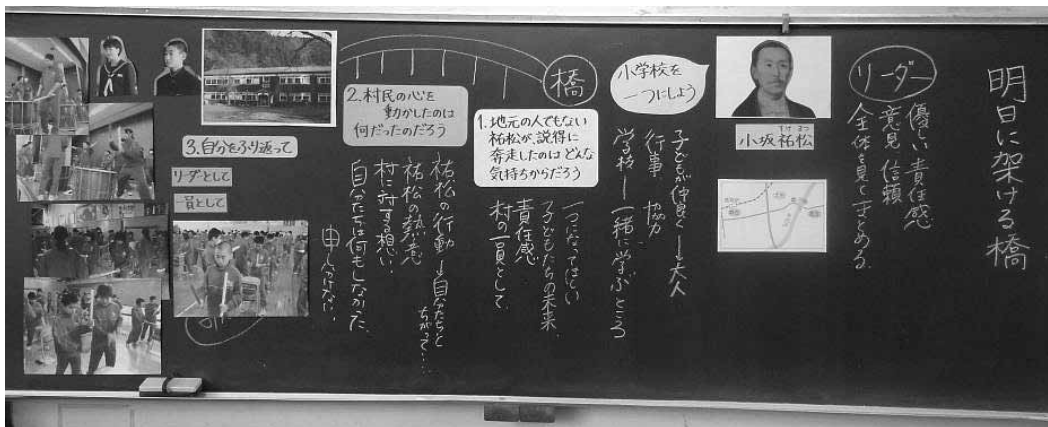 明日に架ける橋
リーダー
優しい 責任感
意見 信頼
全体を見てまとめる。
小坂祐松
小学校を
一つにしよう
子どもが仲良く→大人
行事 協力
学校 ― 一緒に学ぶところ
橋
1.地元の人でもない
祐松が、説得に
奔走したのはどんな
気持ちからだろう
一つになってほしい
子どもたちの未来
責任感
村の一員として
2.村民の心を
動かしたのは
何だったのだろう
祐松の行動→自分たちと
ちがって…
祐松の熱意
村に対する想い…
自分たちは何もしなかった
申しわけない
3.自分をふり返って
リーダーとして
一員として